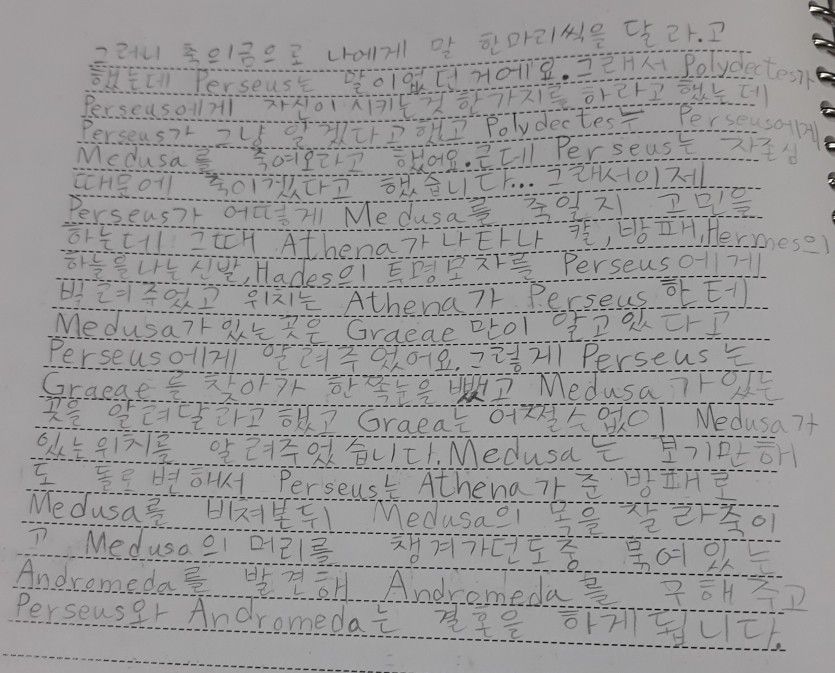 그러니 축의금으로 나에게 말 한마리씩을 달라.고
했는데 Perseus는 말이없던거에요.그래서 Polydectes가
Perseus에게 자신이시키는것 한가지를 하라고했는데
Perseus가 그냥 알겠다고했고 Polydectes는 Perseus에게
Medusa를 죽여오라고 했어요.근데 Perseus는 자존심
때문에 죽이겠다고 했습니다... 그래서이제
Perseus가 어떻게 Medusa를 죽일지 고민을
하는데 그때 Athena가나타나 칼,방패,Hermes의
하늘을나는신발,Hades의 투명모자를 Perseus에게
빌려주었고 위치는 Athena가 Perseus한테
Medusa가있는곳은 Graeae만이 알고있다고
Perseus에게 알려주었어요.그렇게 Perseus는
Graeae를찾아가 한쪽눈을뺐고 Medusa가있는
곳을 알려달라고했고 Graeae는 어쩔수없이 Medusa가
있는위치를 알려주었습니다.Medusa는 보기만해
도 돌로변해서 Perseus는 Athena가준 방패로
Medusa를 비쳐본뒤 Medusa의 목을잘라죽이
고 Medusa의 머리를 챙겨가던도중 묶여있는
Andromeda를 발견해 Andromeda를 구해주고
Perseus와 Andromeda는 결혼을 하게됩니다.